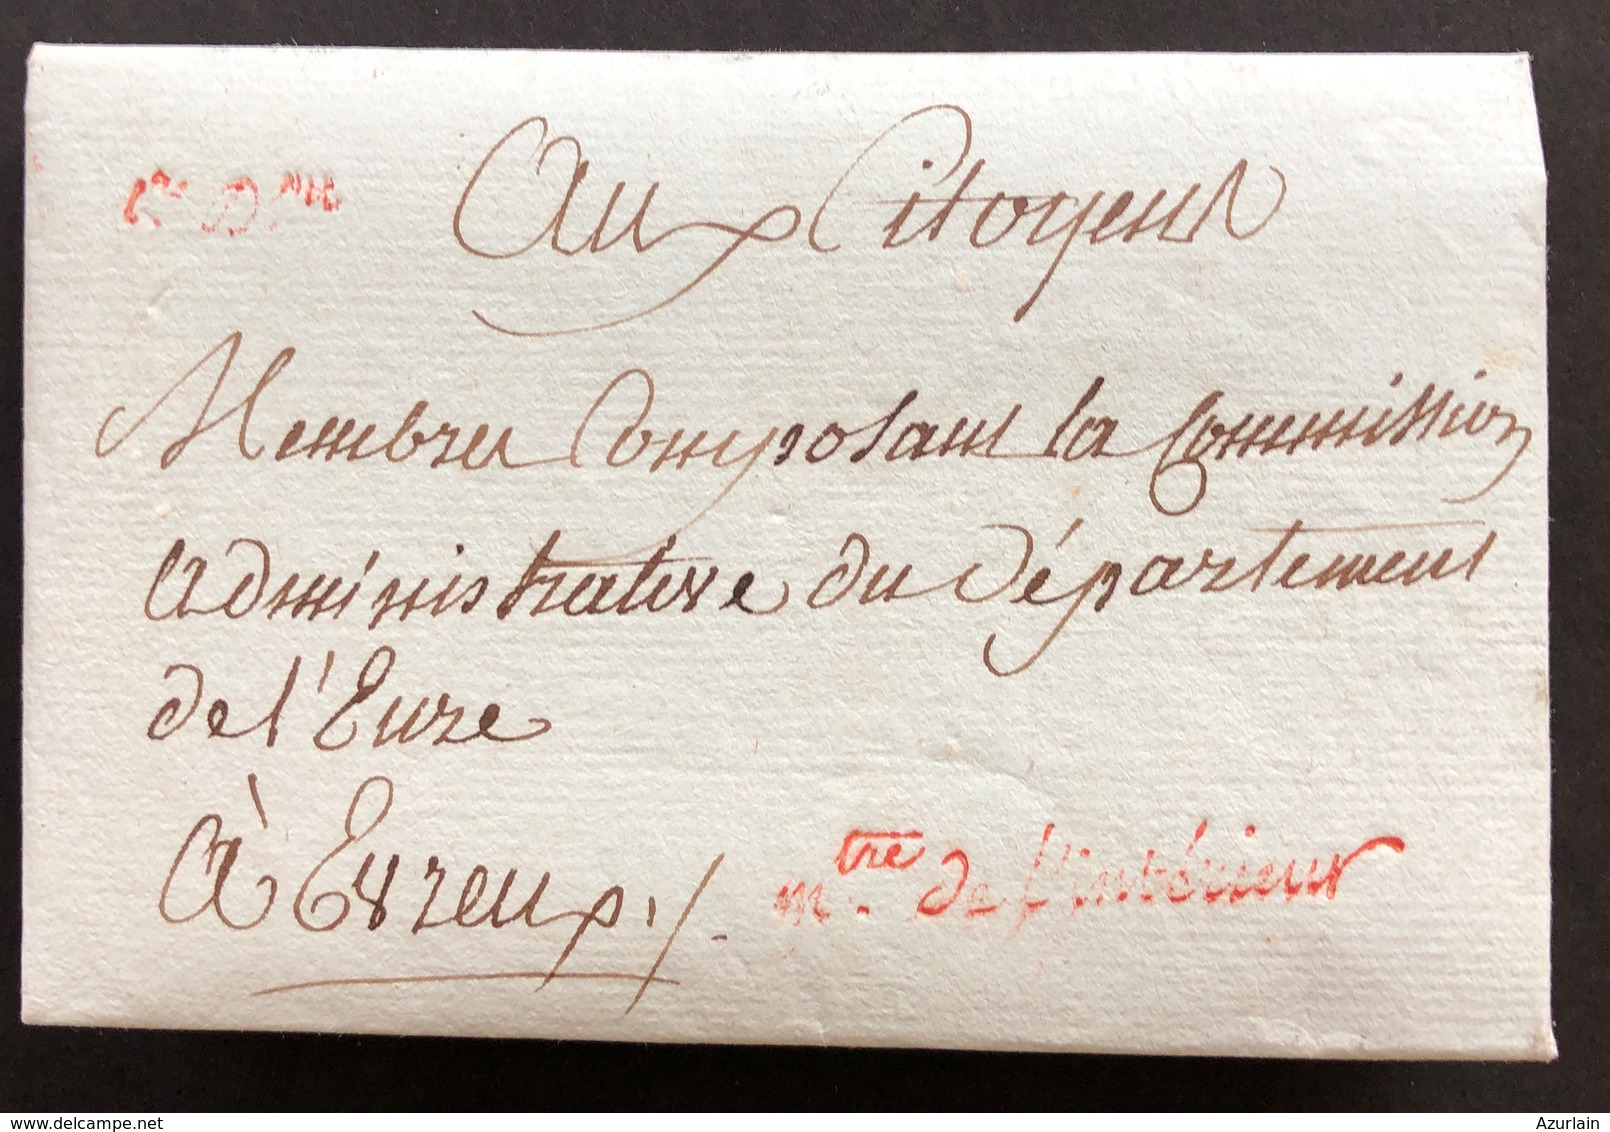 Aux Citoyens
Membres Composans la Commission
administrative du Département
de l'Eure
à Evreux ./.
mtre. de l'intérieur
Azurlain